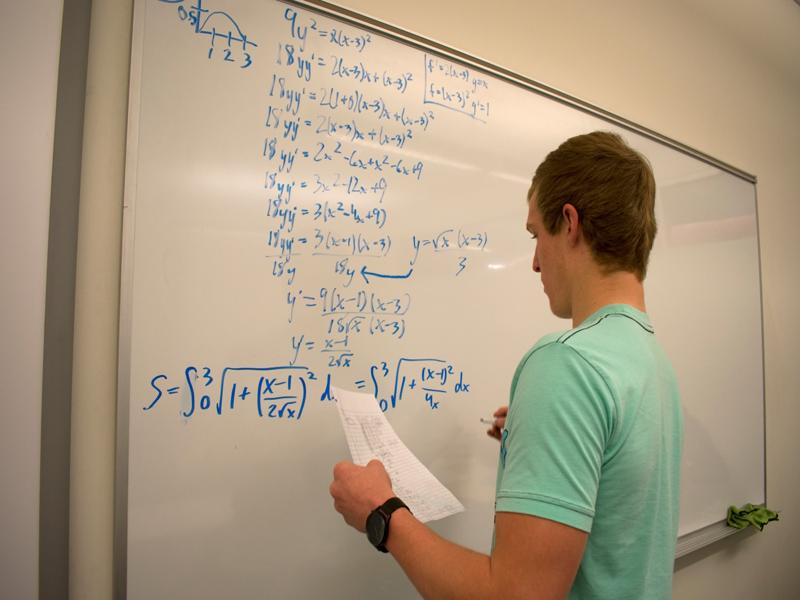 0.5
1 2 3
9y² = x(x-3)²
18yy' = 2(x-3)x + (x-3)²
f' = 2(x-3) g=x
f = (x-3)² g'=1
18yy' = 2(1+0)(x-3)x + (x-3)²
18yy' = 2(x-3)x + (x-3)²
18yy' = 2x² - 6x + x² - 6x + 9
18yy' = 3x² - 12x + 9
18yy' = 3(x² - 4x + 9)
18yy'/18y = 3(x-1)(x-3)/18y ← y = √x (x-3)/3
y' = 9(x-1)(x-3)/18√x (x-3)
y' = x-1/2√x
S = ∫₀³ √(1 + (x-1/2√x)²) d = ∫₀³ √(1 + (x-1)²/4x) dx